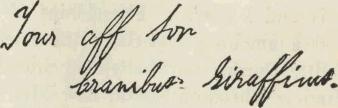 Your aff son
Cranibus Giraffinus.